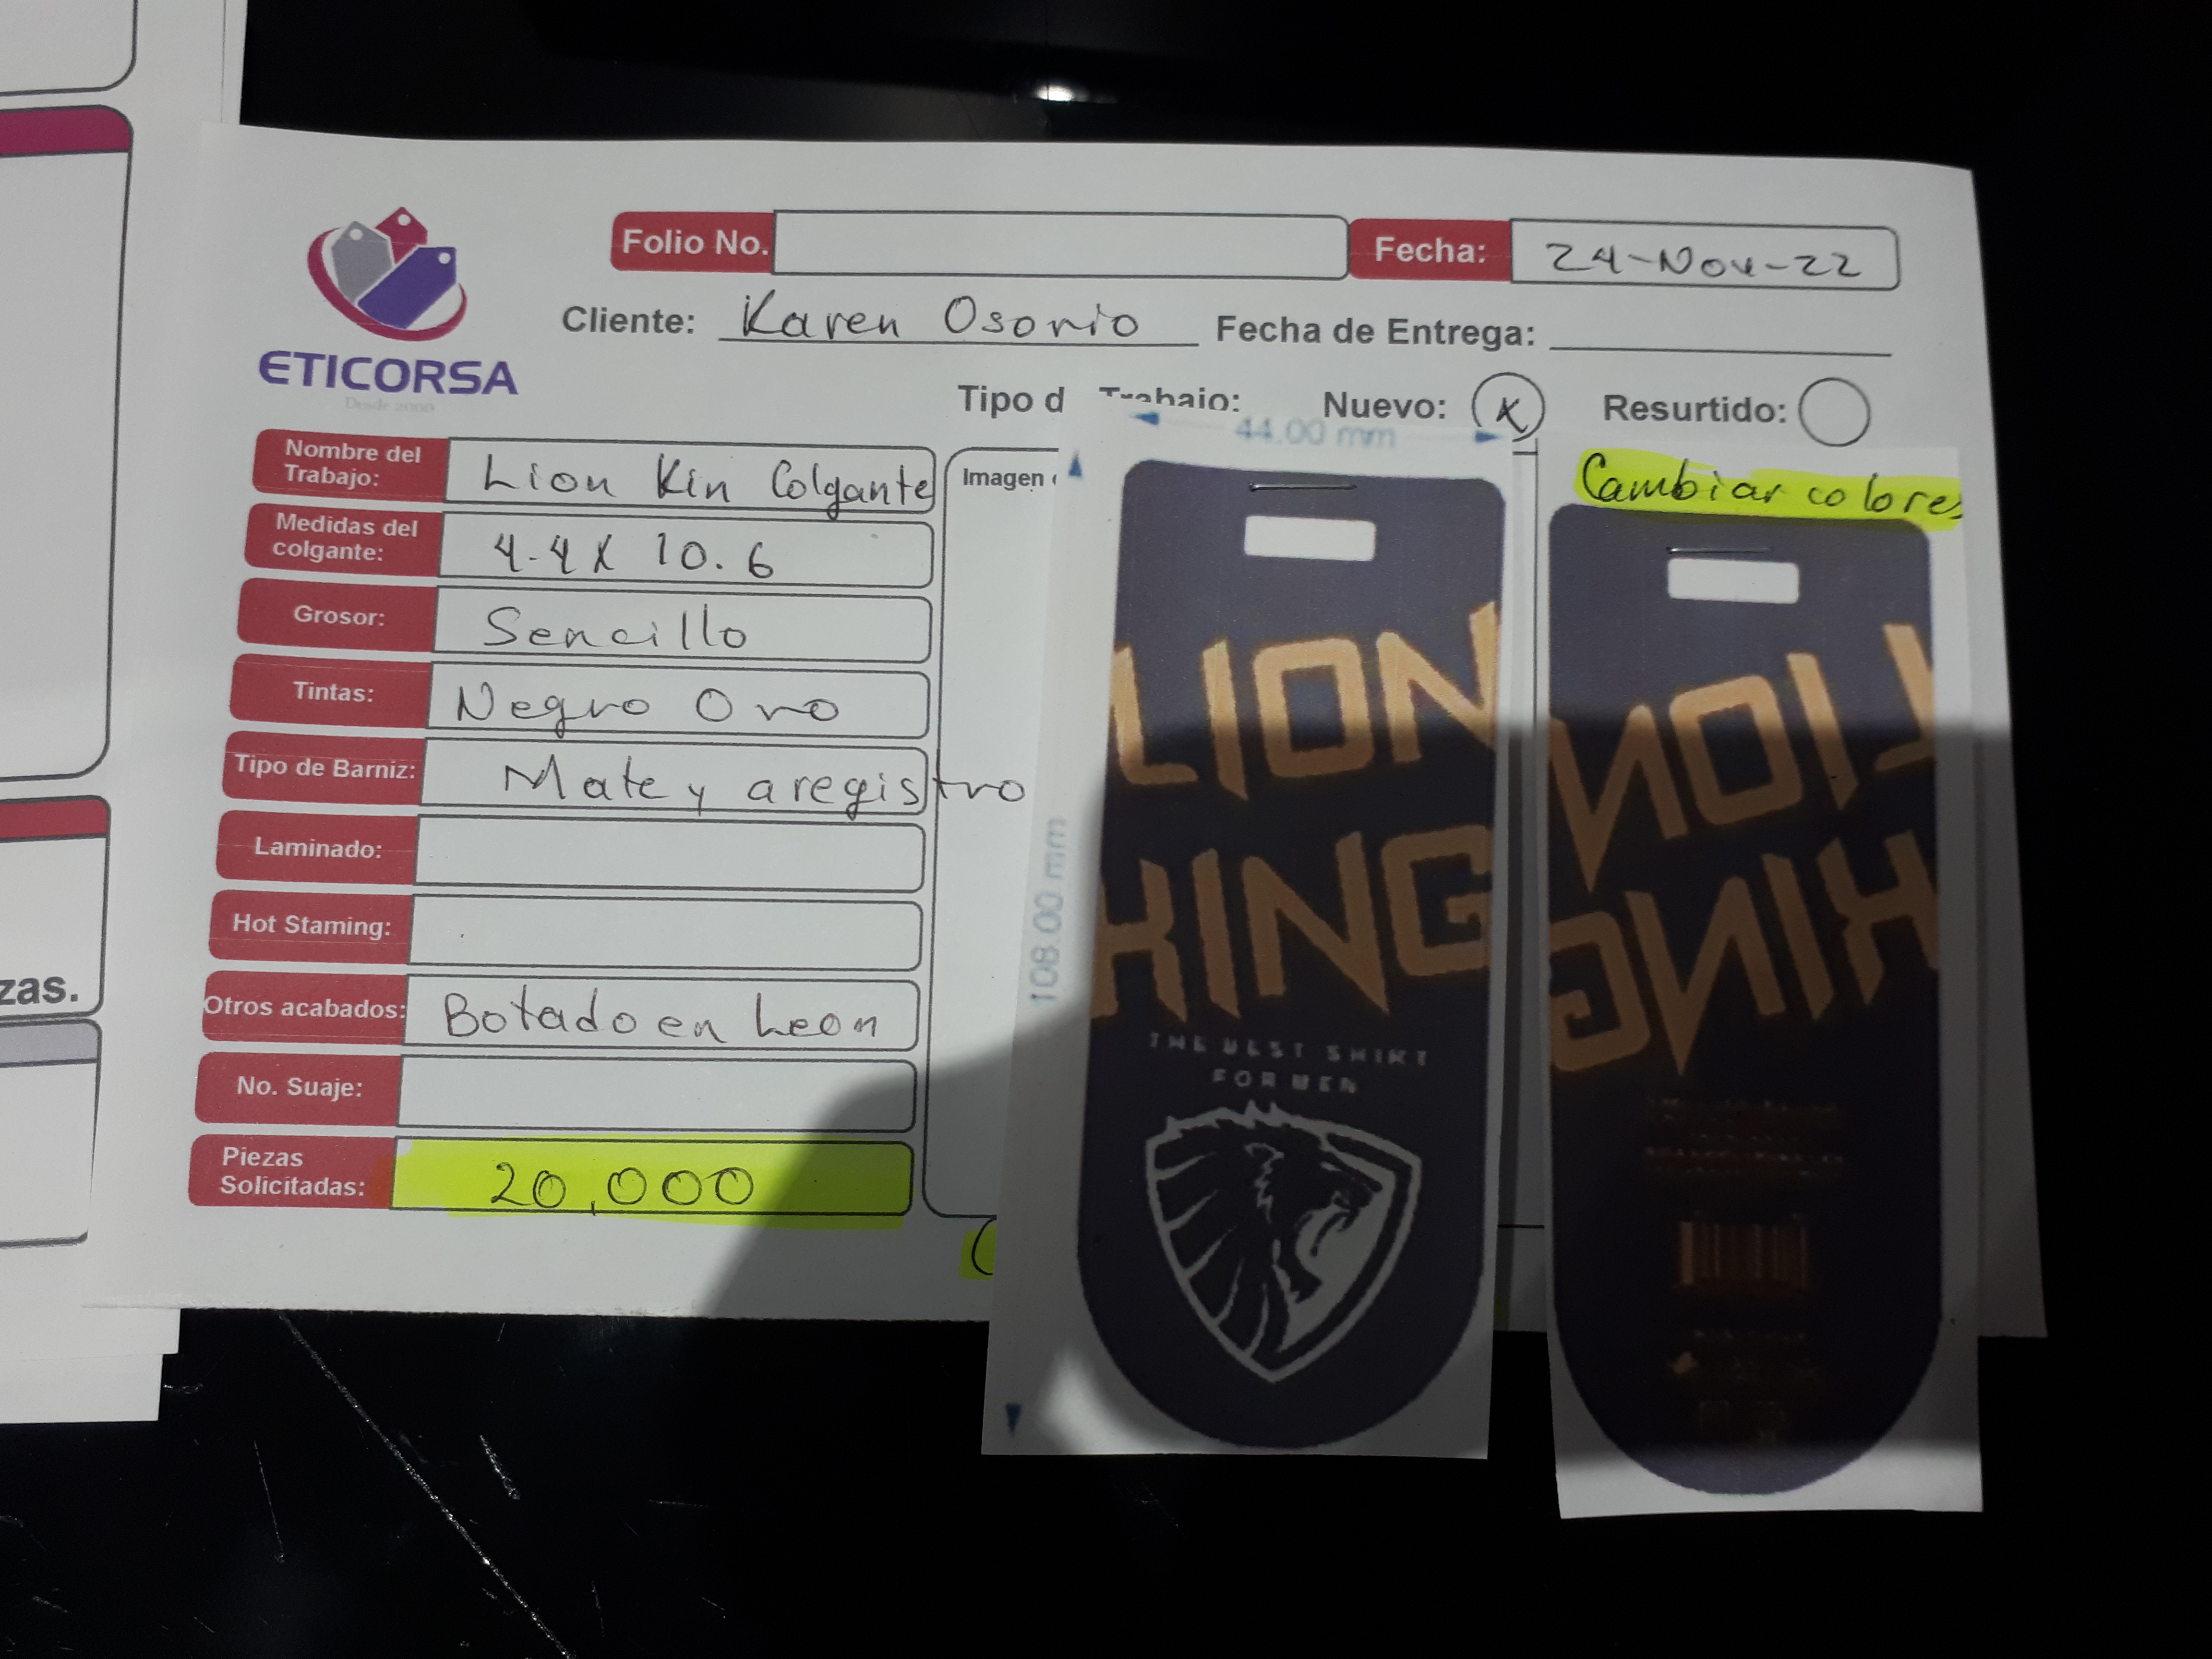 zas.
ETICORSA
Desde 2008
Folio No.
Fecha: 24-Nov-22
Cliente: Karen Osornio Fecha de Entrega:
Tipo d Trabajo: Nuevo: X Resurtido:
Nombre del Trabajo: Lion Kin Colgante
Medidas del colgante: 4.4 X 10.6
Grosor: Sencillo
Tintas: Negro Oro
Tipo de Barniz: Mate y a registro
Laminado:
Hot Staming:
Otros acabados: Botado en leon
No. Suaje:
Piezas Solicitadas: 20,000
Imagen
44.00 mm
108.00 mm
LION
KING
THE BEST SHIRT
FOR MEN
Cambiar colores
LION
KING